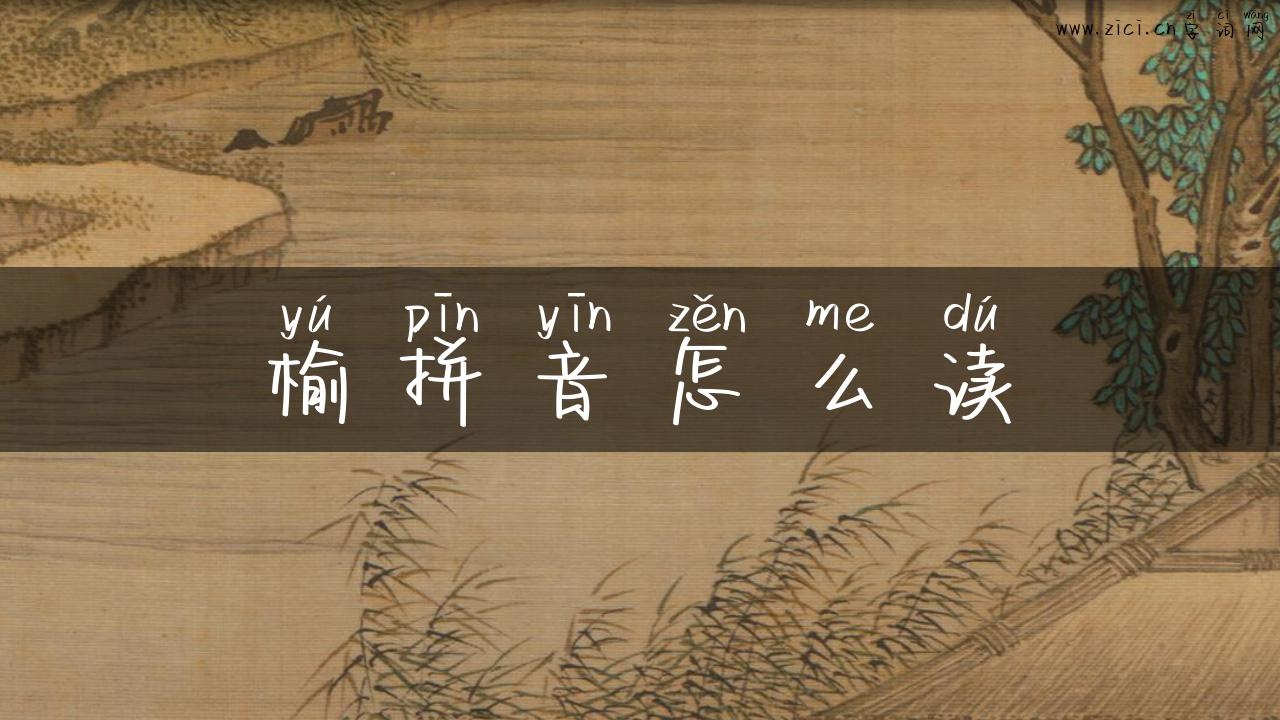 zì cí wǎng
www.zici.cn字词网
yú pīn yīn zěn me dú
榆拼音怎么读